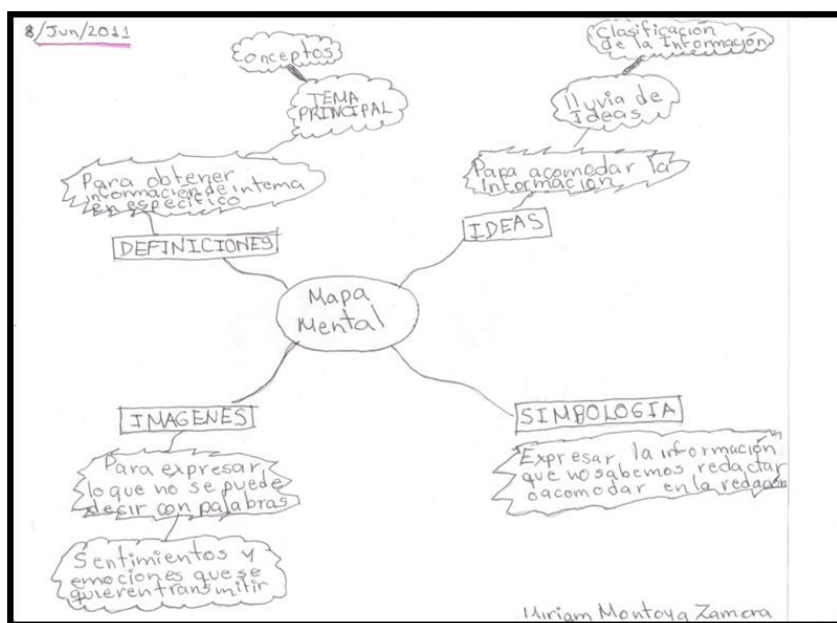 8/Jun/2011
Conceptos
TEMA
PRINCIPAL
Para obtener
información de intema
en especifico
DEFINICIONES
Clasificación
de la Información
lluvia de
Ideas
Para acomodar la
información
IDEAS
Mapa
Mental
IMAGENES
Para expresar
lo que no se puede
decir con palabras
Sentimientos y
emociones que se
quieren transmitir
SIMBOLOGIA
Expresar la información
que no sabemos redactar
o acomodar en la redacón
Miriam Montoya Zamora